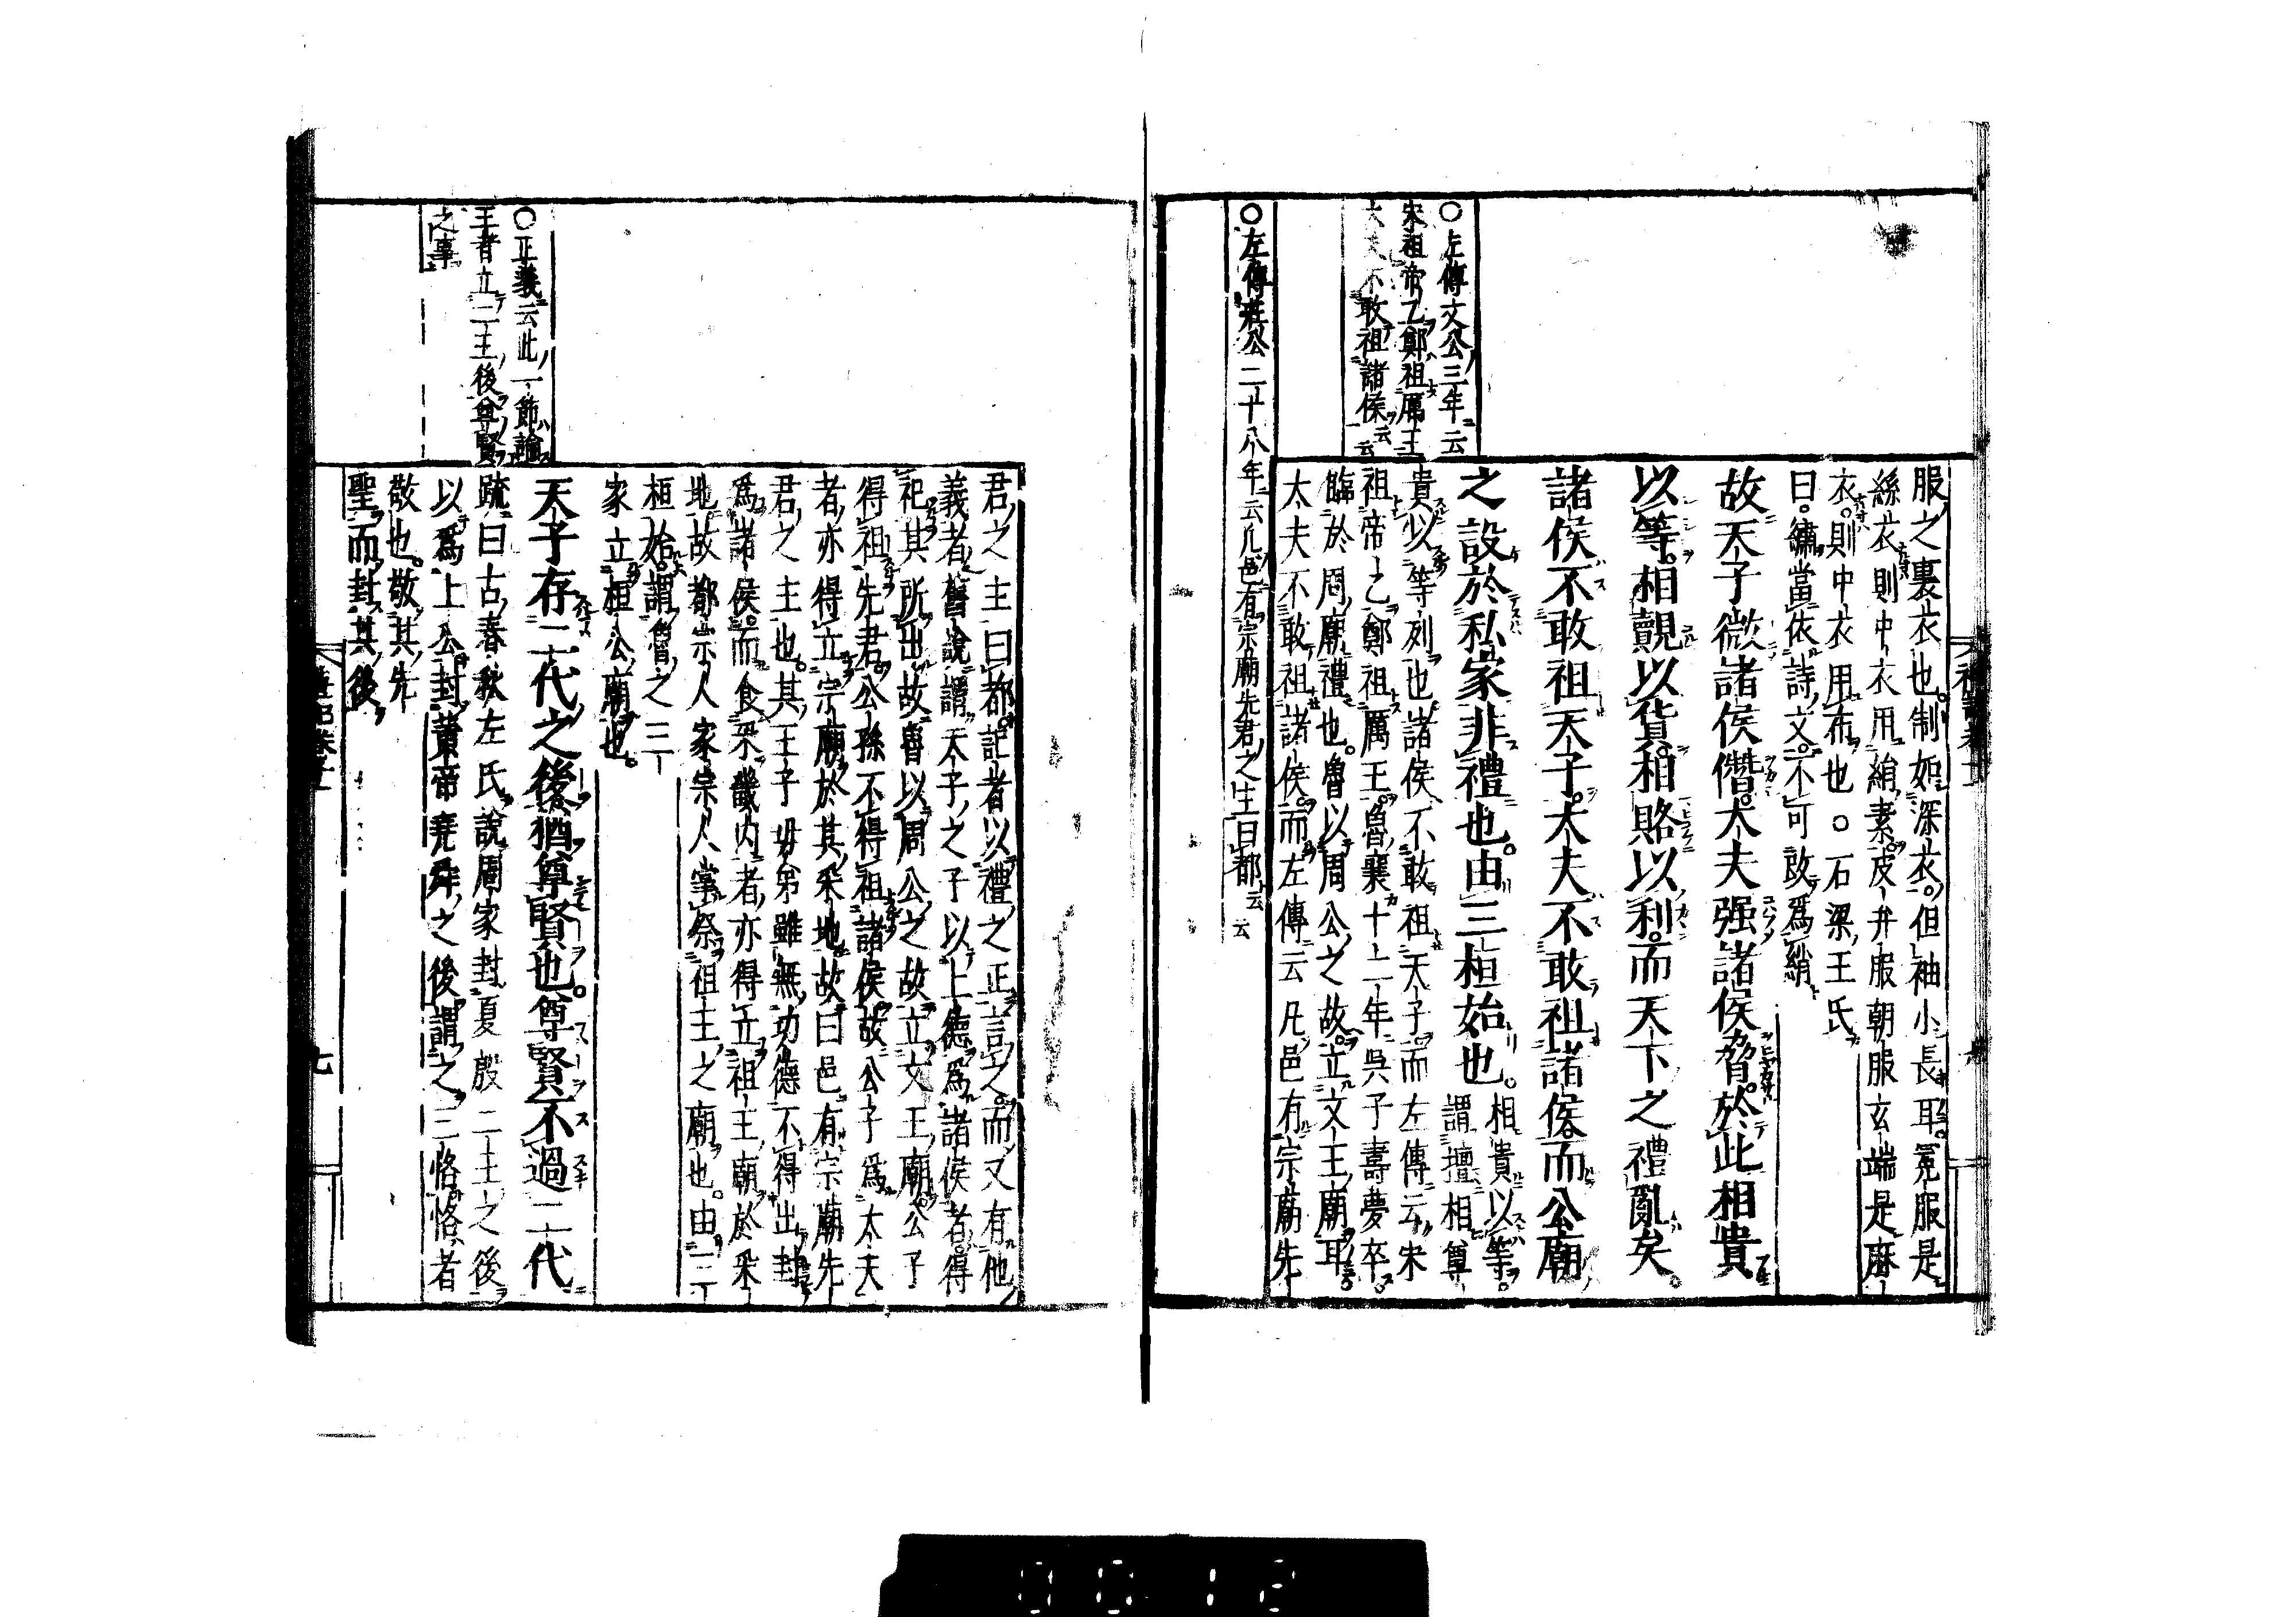 服之裏衣也。制如深衣。但袖小長耳。冕服是
絲衣則中衣用綃素。皮弁服朝服玄端是麻
衣。則中衣用布也。○石梁王氏
曰。繡當依詩文。不可改爲綃
故天子微諸侯僭。大夫强諸侯脅。於此相貴
以等。相覿以貨。相賂以利。而天下之禮亂矣。
諸侯不敢祖天子。大夫不敢祖諸侯。而公廟
之設於私家非禮也。由三桓始也。相貴以等。
謂擅相尊
貴以等列也。諸侯不敢祖天子。而左傳云宋
祖帝乙鄭祖厲王。魯襄十二年吳子壽夢卒。
臨於周廟禮也。魯以周公之故。立文王廟耳。
大夫不敢祖諸侯。而左傳云凡邑有宗廟先
○左傳文公三年云
宋祖帝乙鄭祖厲王
大夫不敢祖諸侯云云
○左傳莊公二十八年云凡邑有宗廟先君之主曰都云云
君之主曰都。記者以禮之正言之。而又有他
義者。舊說謂天子之子以上德爲諸侯者。得
祀其所出。故魯以周公之故立文王廟。公子
得祖先君。公孫不得祖諸侯。故公子爲大夫
者。亦得立宗廟於其采地。故曰邑有宗廟先
君之主也。其王子母弟雖無功德不得出封
爲諸侯。而食采畿內者。亦得立祖王廟於采
地。故都宗人家宗人掌祭祖王之廟也。由三
桓始。謂魯之三
家立桓公廟也。
天子存二代之後。猶尊賢也。尊賢不過二代
疏曰古春秋左氏說周家封夏殷二王之後
以爲上公。封黃帝堯舜之後謂之三恪。恪者
敬也。敬其先
聖而封其後。
○正義云此一節論
王者立二王後尊賢
之事
七